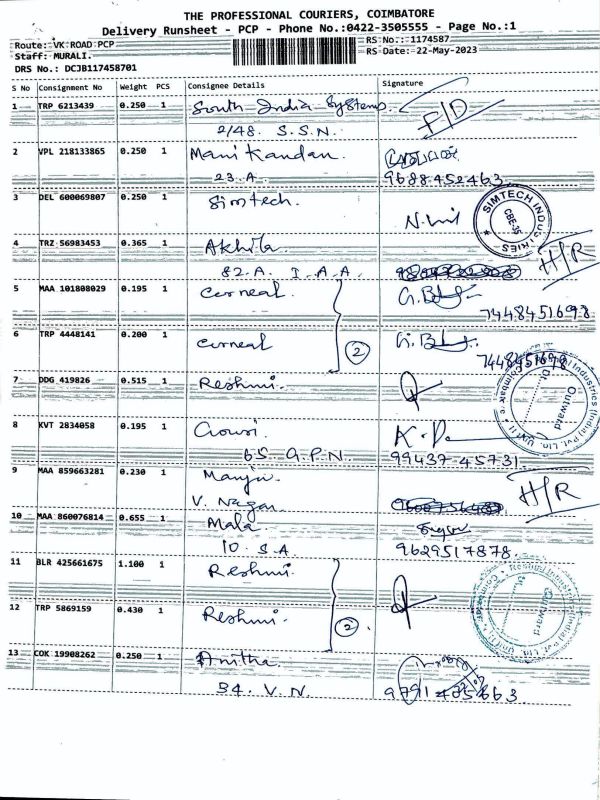 THE PROFESSIONAL COURIERS, COIMBATORE
Delivery Runsheet - PCP - Phone No.:0422-3505555 - Page No.:1
Route: VK ROAD PCP
RS No.: 1174587
Staff: MURALI.
RS Date: 22-May-2023
DRS No.: DCJB117458701
S No Consignment No Weight PCS Consignee Details Signature
1 TRP 6213439 0.250 1 South India Systems F/D
2/48. S.S.N.
2 VPL 218133865 0.250 1 Manikandan.
23.A 9688452463
3 DEL 600069807 0.250 1 Simtech.
SIMTECH INDUSTRIES CBE-35
4 TRZ 56983453 0.365 1 Akhila H/R
82.A. I.A.A.
5 MAA 101808029 0.195 1 Corneal.
7448451698
6 TRP 4448141 0.200 1 Corneal (2)
7448451698
7 DDG 419826 0.515 1 Reshmi.
Outward
8 KVT 2834058 0.195 1 Gowri.
65 G.P.N. 99437-45731
9 MAA 859663281 0.230 1 Manju H/R
V. Nagar
10 MAA 860076814 0.655 1 Mala
10 S.A 9629517878
11 BLR 425661675 1.100 1 Reshmi.
12 TRP 5869159 0.430 1 Reshmi. (2)
Outward
13 COK 19908262 0.250 1 Anitha
34. V.N.